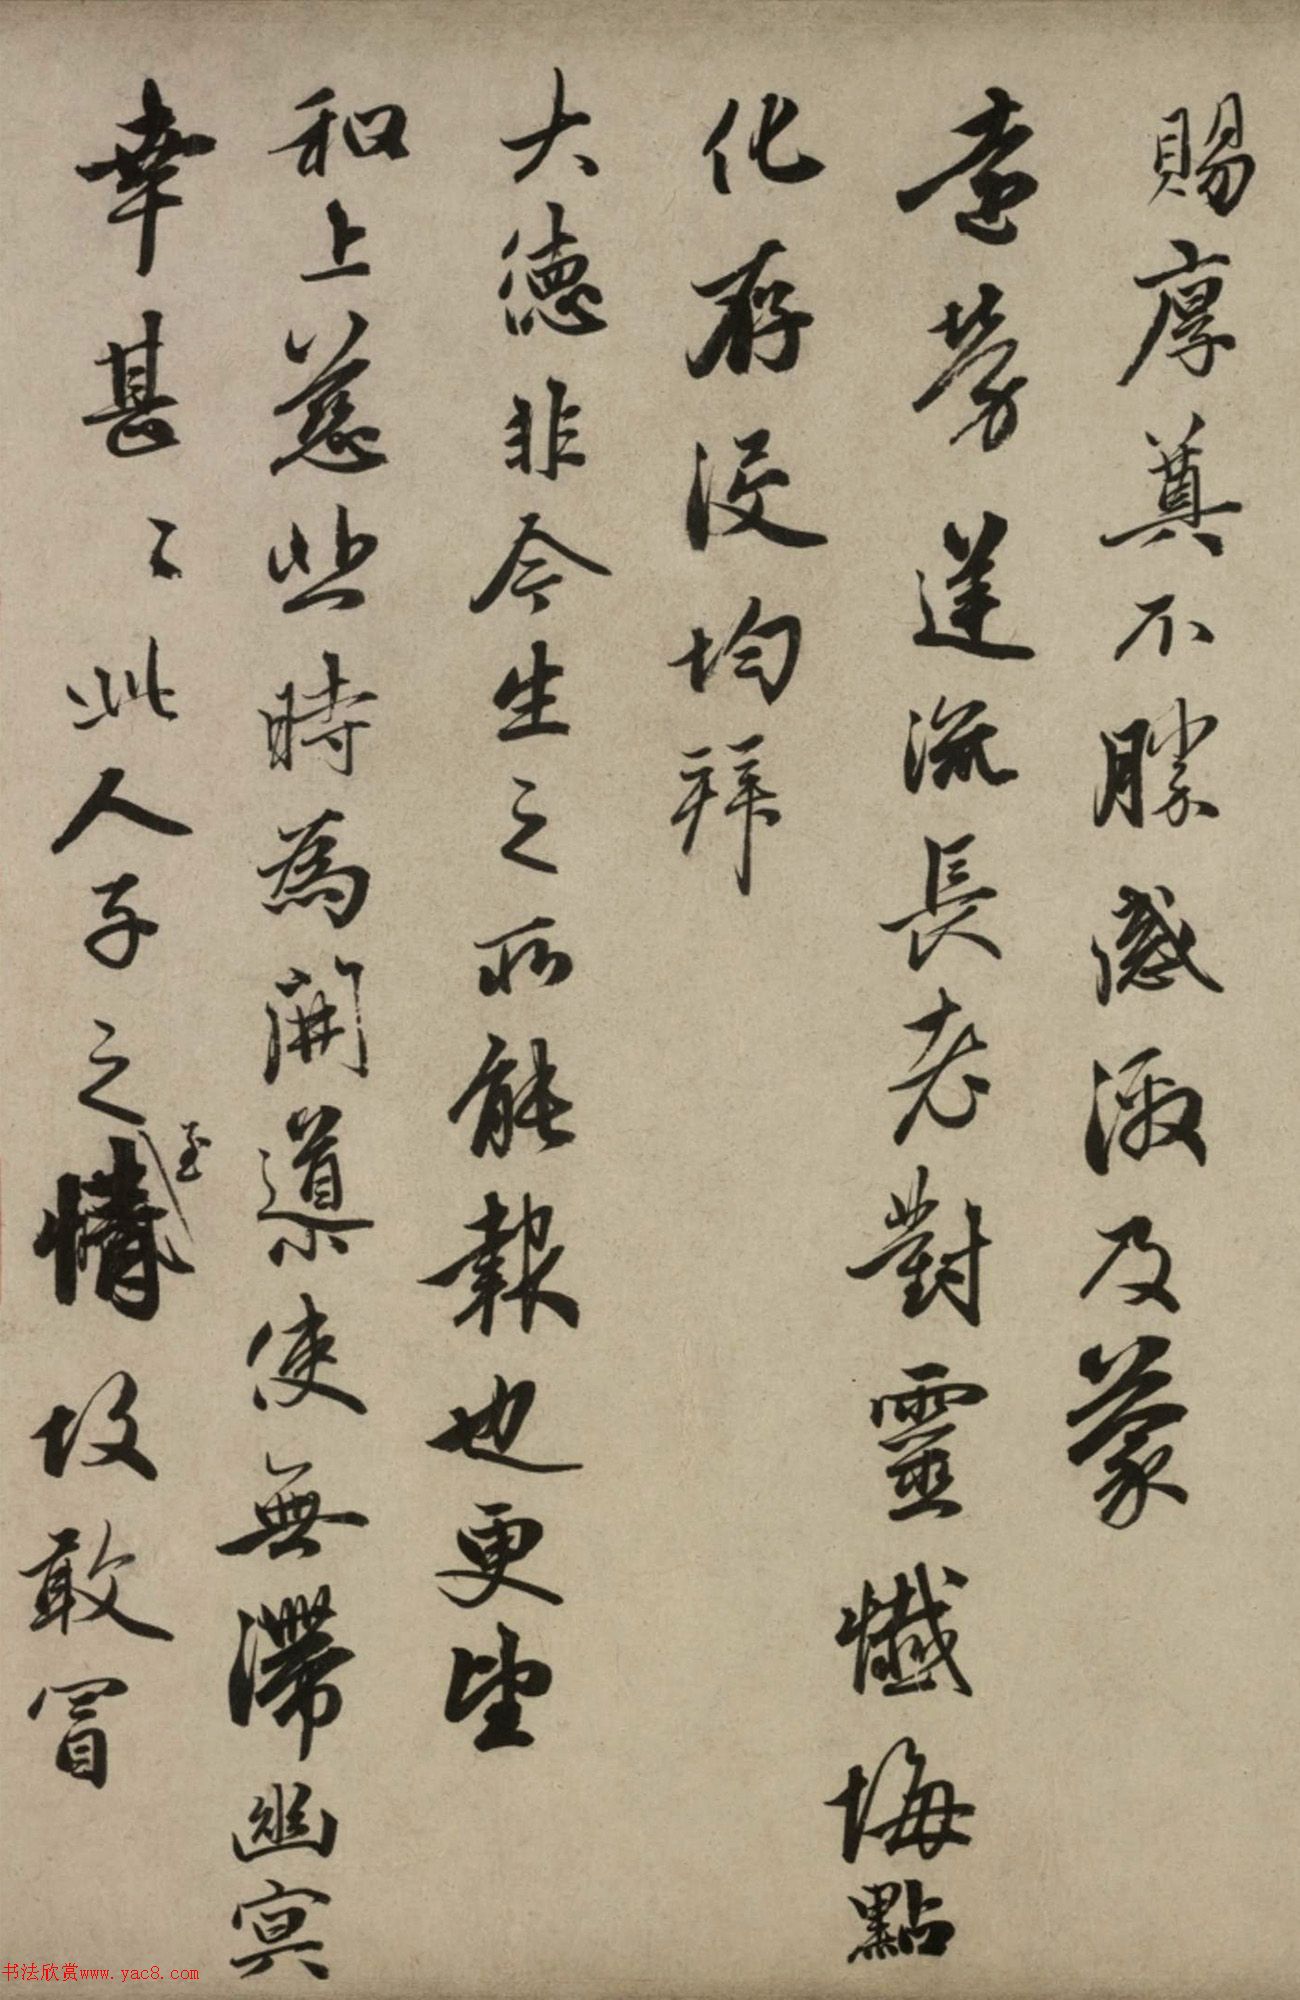 賜厚奠不勝感激及蒙
遠勞蓬流長老對靈懺悔點
化存沒均拜
大德非今生之所能報也更望
和上慈悲時為開導使無滯幽冥
幸甚〻此人子之至情故敢冒
书法欣赏www.yac8.com